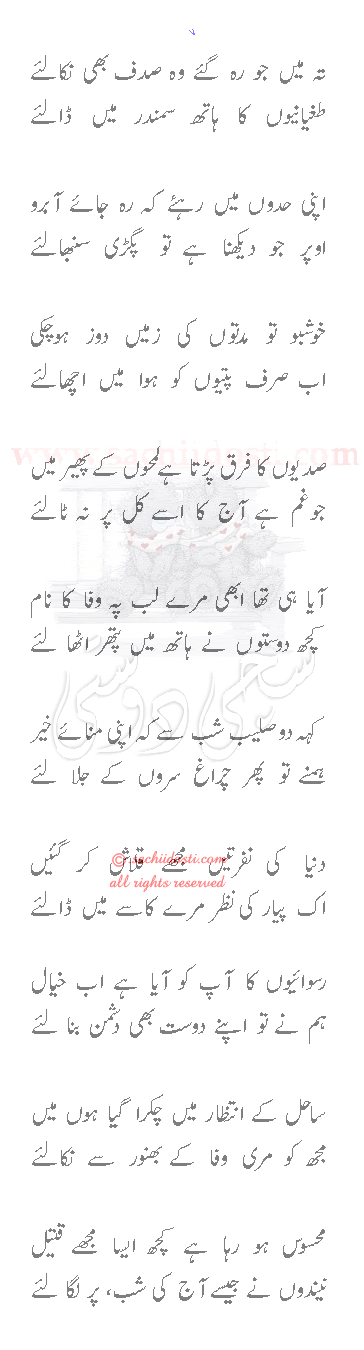 تہ میں جو رہ گئے وہ صدف بھی نکالئے
طغیانیوں کا ہاتھ سمندر میں ڈالئے
اپنی حدوں میں رہئے کہ رہ جائے آبرو
اوپر جو دیکھنا ہے تو پگڑی سنبھالئے
خوشبو تو مدتوں کی زمیں دوز ہوچکی
اب صرف پتیوں کو ہوا میں اچھالئے
صدیوں کا فرق پڑتا ہے لمحوں کے پھیر میں
جو غم ہے آج کا اسے کل پر نہ ٹالئے
آیا ہی تھا ابھی مرے لب پہ وفا کا نام
کچھ دوستوں نے ہاتھ میں پتھر اٹھا لئے
کہہ دو صلیب شب سے کہ اپنی منائے خیر
ہمنے تو پھر چراغ سروں کے جلا لئے
دنیا کی نفرتیں مجھے قلاش کر گئیں
اک پیار کی نظر مرے کاسے میں ڈالئے
رسوائیوں کا آپ کو آیا ہے اب خیال
ہم نے تو اپنے دوست بھی دشمن بنا لئے
ساحل کے انتظار میں چکرا گیا ہوں میں
مجھ کو مری وفا کے بھنور سے نکالئے
محسوس ہو رہا ہے کچھ ایسا مجھے قتیل
نیندوں نے جیسے آج کی شب، پر لگا لئے
www.sachiidosti.com
سچی دوستی
©sachiidosti.com
all rights reserved